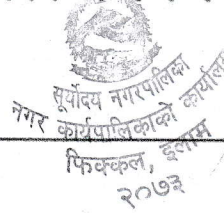 सूर्योदय नगरपालिका
नगर कार्यपालिकाको कार्यालय
फिक्कल, इलाम
२०७३